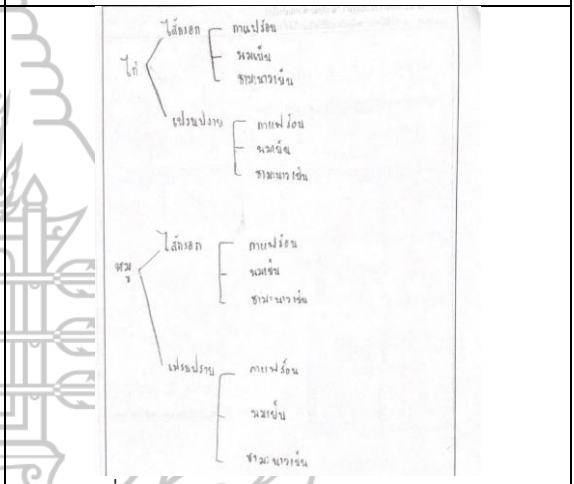 ไส้กรอก กาแฟร้อน
นมเย็น
ไก่
ชามะนาวเย็น
เฟรนปราย กาแฟร้อน
นมเย็น
ชามะนาวเย็น
ไส้กรอก กาแฟร้อน
หมู นมเย็น
ชามะนาวเย็น
เฟรนปราย กาแฟร้อน
นมเย็น
ชามะนาวเย็น